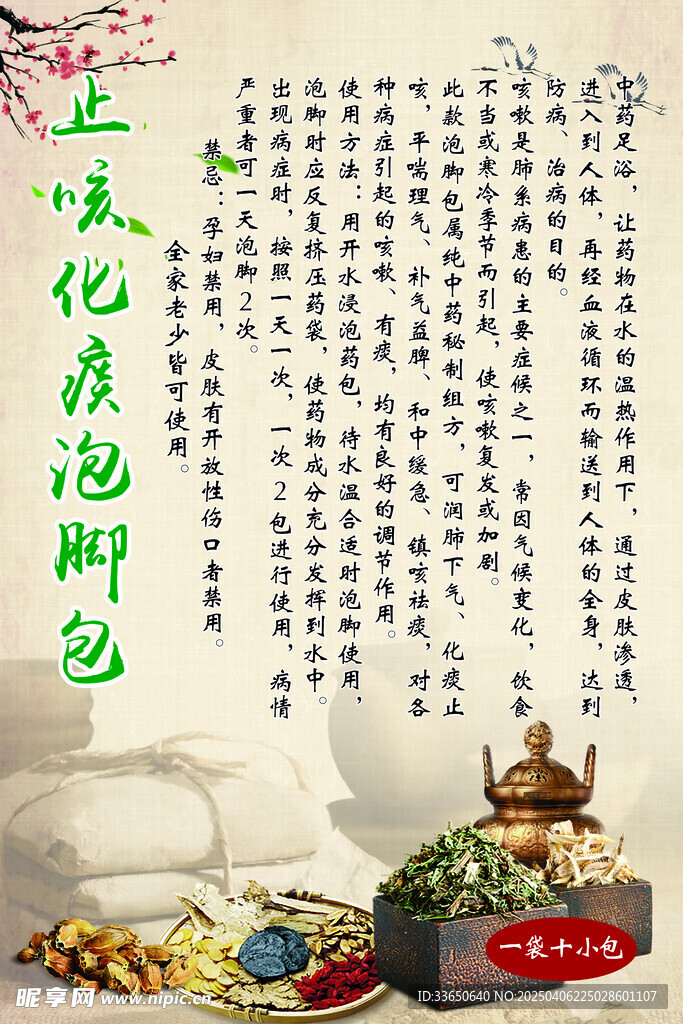 止咳化痰泡脚包
中药足浴，让药物在水的温热作用下，通过皮肤渗透，
进入到人体，再经血液循环而输送到人体的全身，达到
防病、治病的目的。
咳嗽是肺系病患的主要症候之一，常因气候变化，饮食
不当或寒冷季节而引起，使咳嗽复发或加剧。
此款泡脚包属纯中药秘制组方，可润肺下气、化痰止
咳，平喘理气、补气益脾、和中缓急、镇咳祛痰，对各
种病症引起的咳嗽、有痰，均有良好的调节作用。
使用方法：用开水浸泡药包，待水温合适时泡脚使用，
泡脚时应反复挤压药袋，使药物成分充分发挥到水中。
出现病症时，按照一天一次，一次2包进行使用，病情
严重者可一天泡脚2次。
禁忌：孕妇禁用，皮肤有开放性伤口者禁用。
全家老少皆可使用。
一袋十小包
昵享网 www.nipic.cn
ID:33650640 NO:20250406225028601107